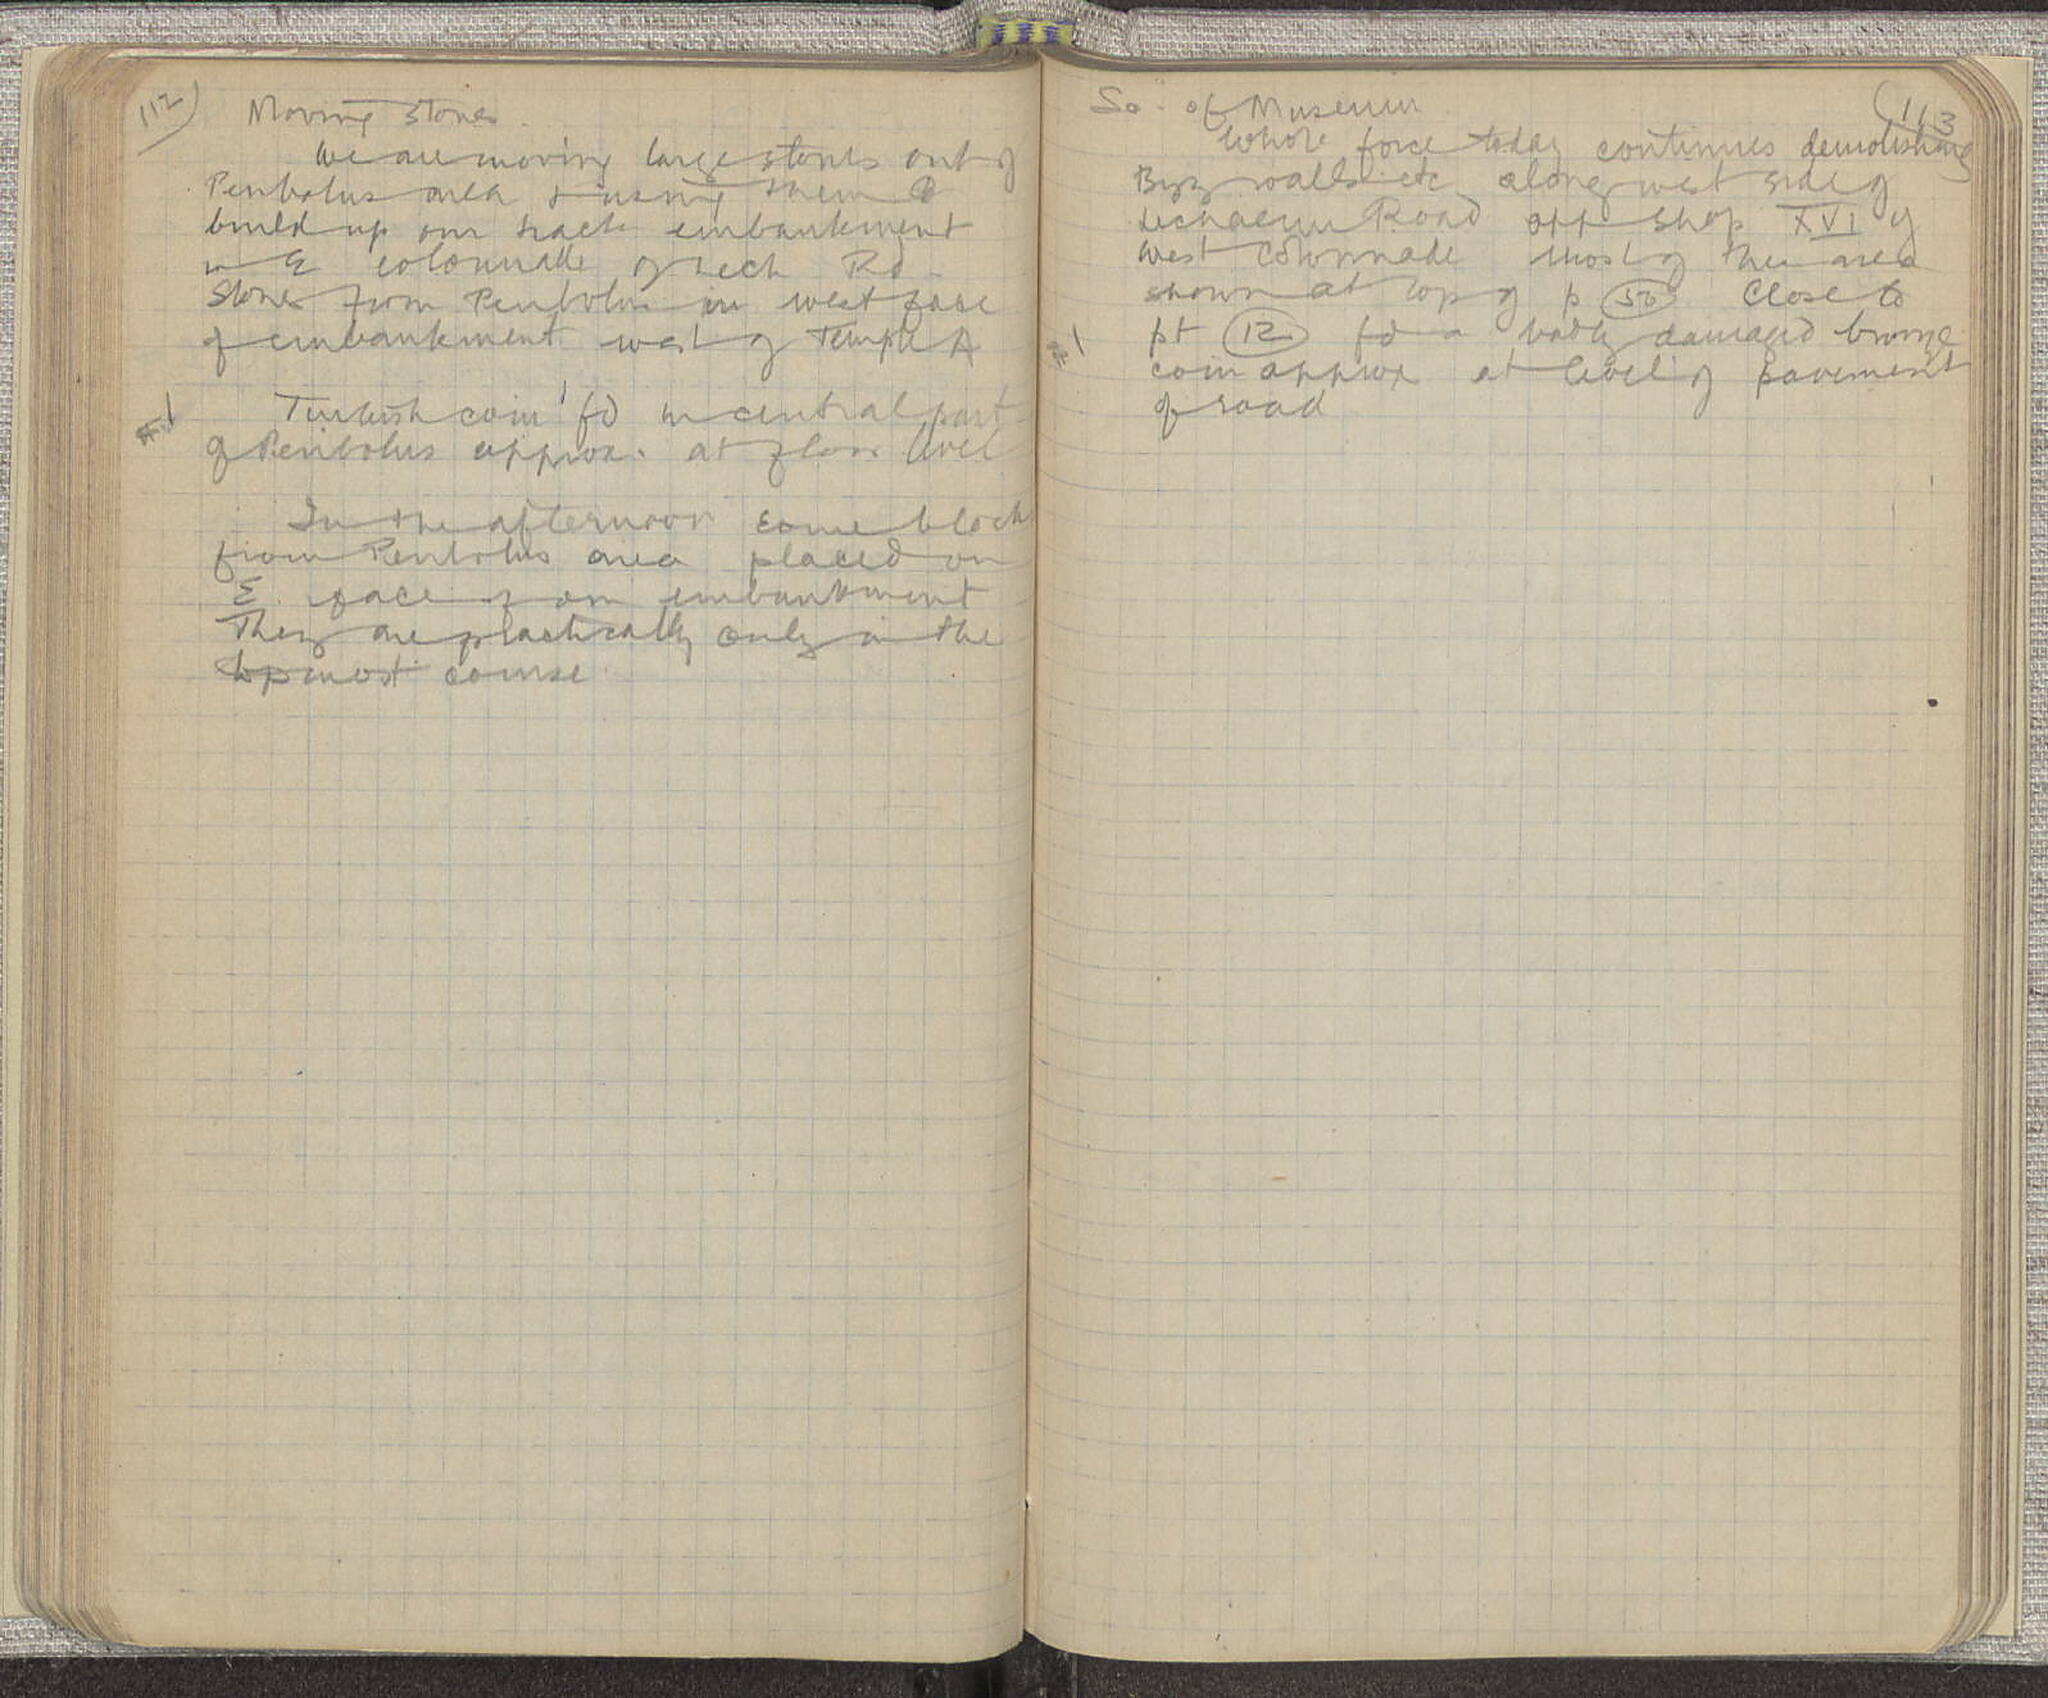 112)
Moving stones.
We are moving large stones out of
Peribolus area & using them to
build up our track embankment
in E colonnade of Lech Rd.
Stones from Peribolus in west face
of embankment west of Temple A
1
Turkish coin fd in central part
of Peribolus approx. at floor level
In the afternoon some block
from Peribolus area placed on
E. face of our embankment
They are practically only in the
topmost course
(113
So. of Museum
Whole force today continues demolishing
Byz walls etc along west side of
Lechaeum Road opp Shop XVI of
West Colonnade Most of the area
shown at top of p 50 Close to
1
pt 12 fd a badly damaged bronze
coin approx at level of pavement
of road